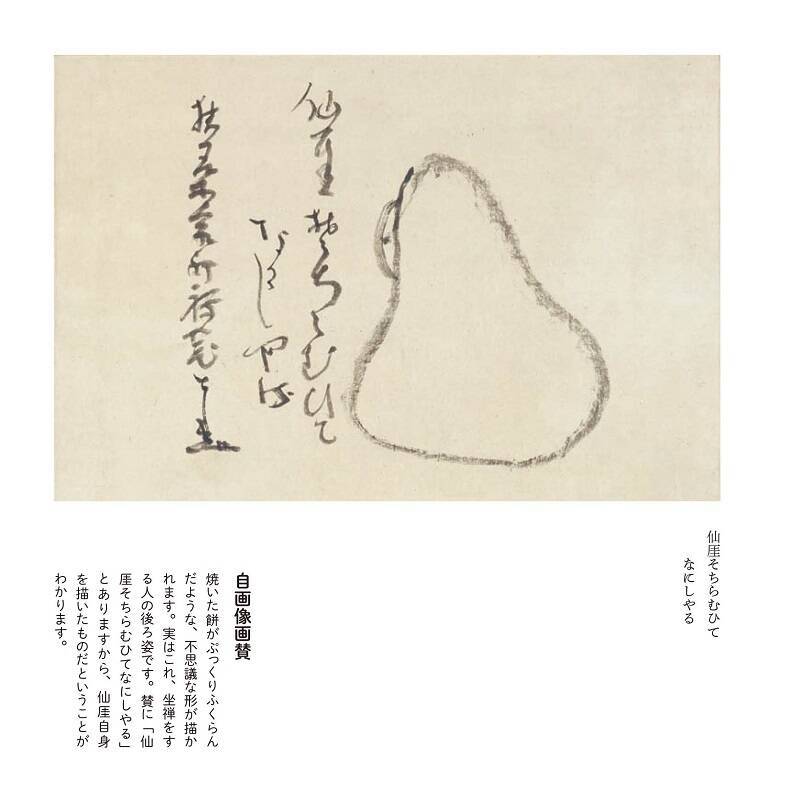 仙厓そちらむひて
なにしやる
仙厓そちらむひて
なにしやる
自画像画賛
焼いた餅がぷっくりふくらん
だような、不思議な形が描か
れます。実はこれ、坐禅をす
る人の後ろ姿です。賛に「仙
厓そちらむひてなにしやる」
とありますから、仙厓自身
を描いたものだということが
わかります。